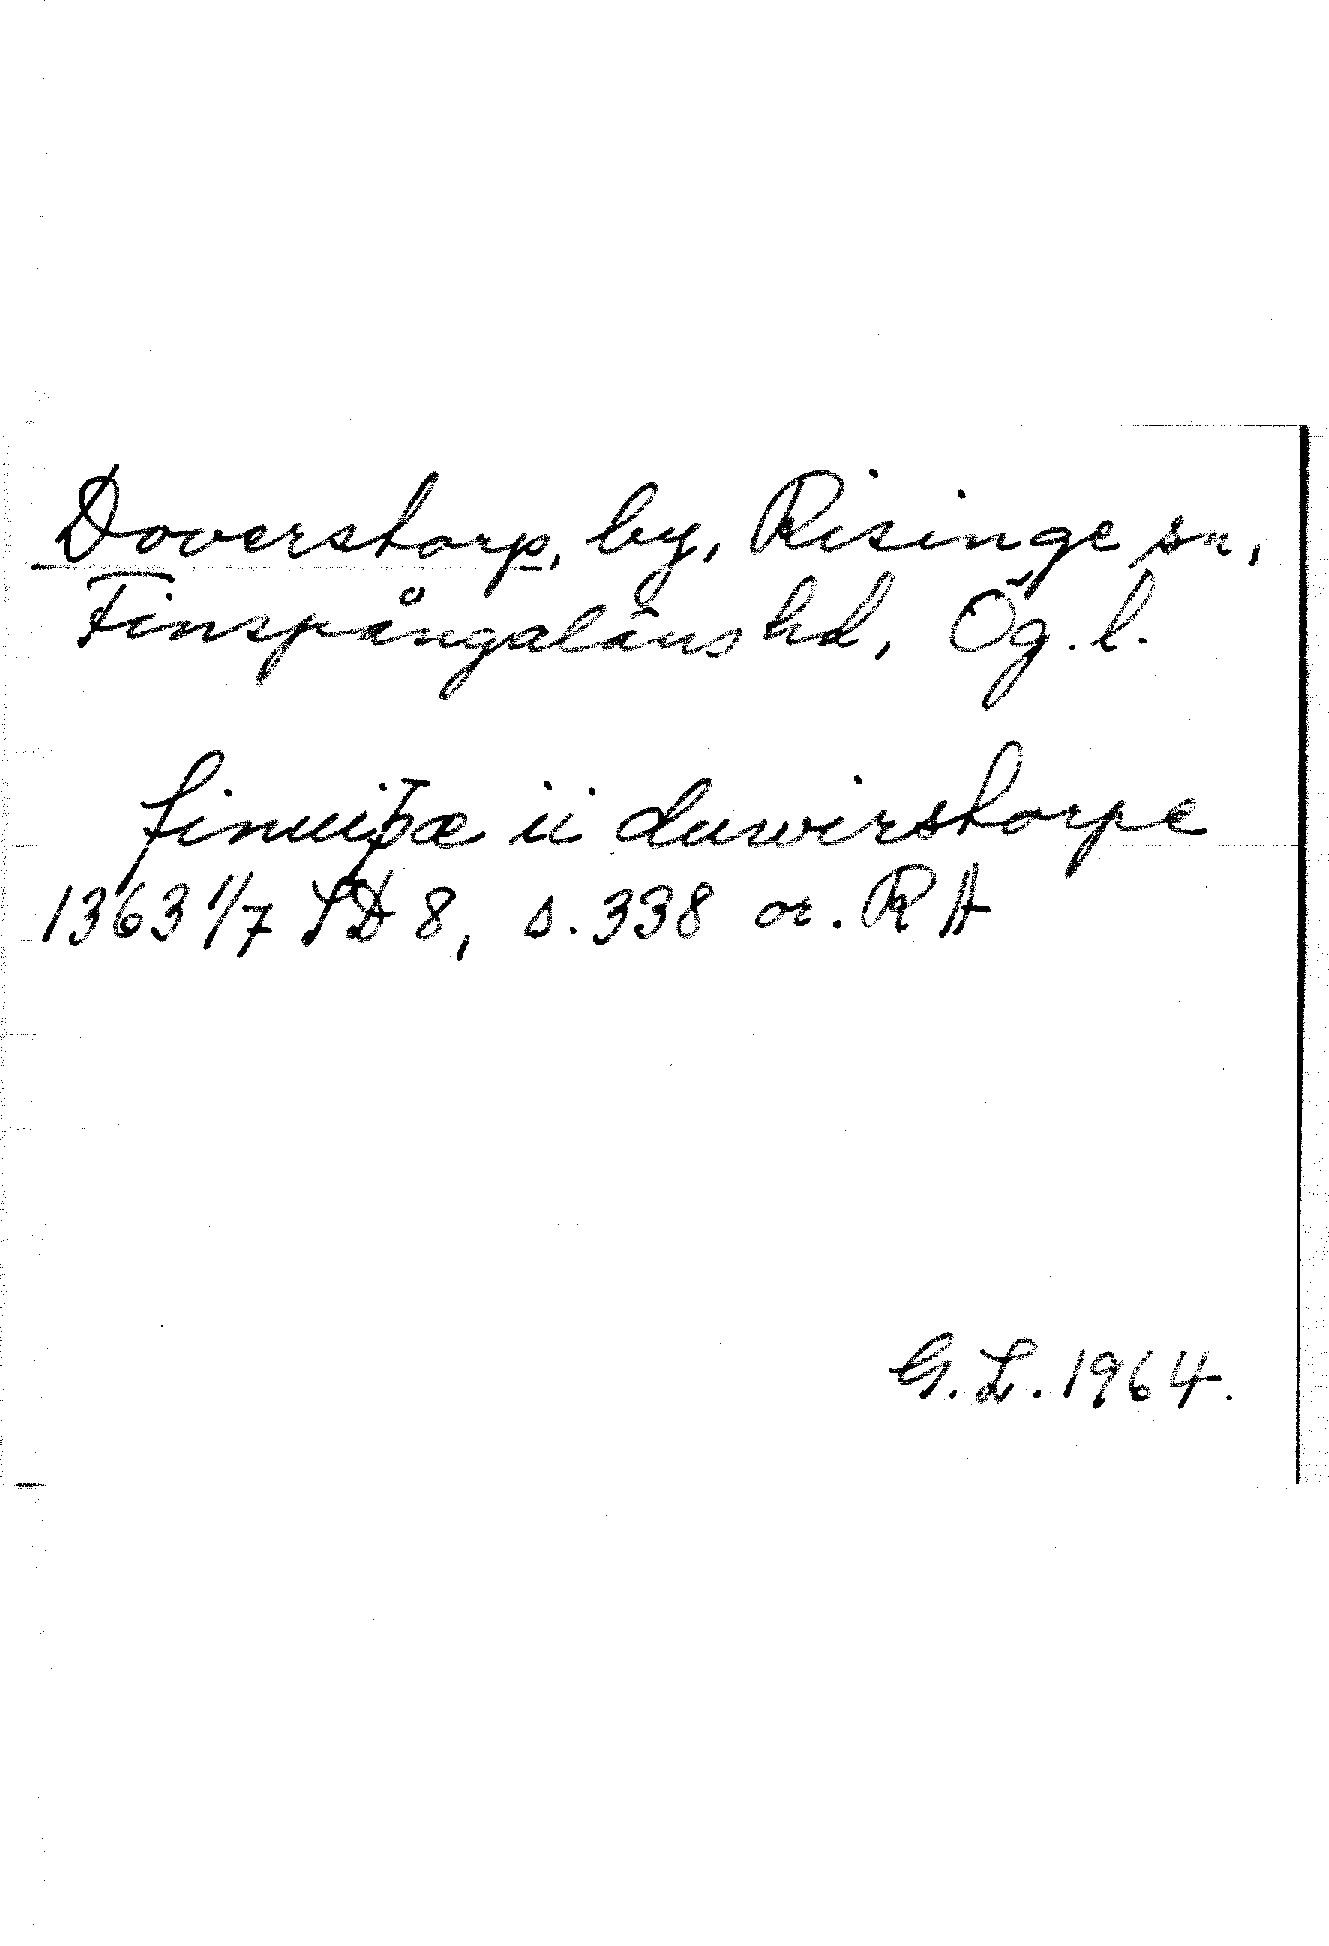 Doverstorp, by, Risinge sn,
Finspångaläns hd, Ög. l.
finuiþæ ii duwirstorpe
1363 1/7 SD 8, s. 338 or. RA
G. L. 1964.